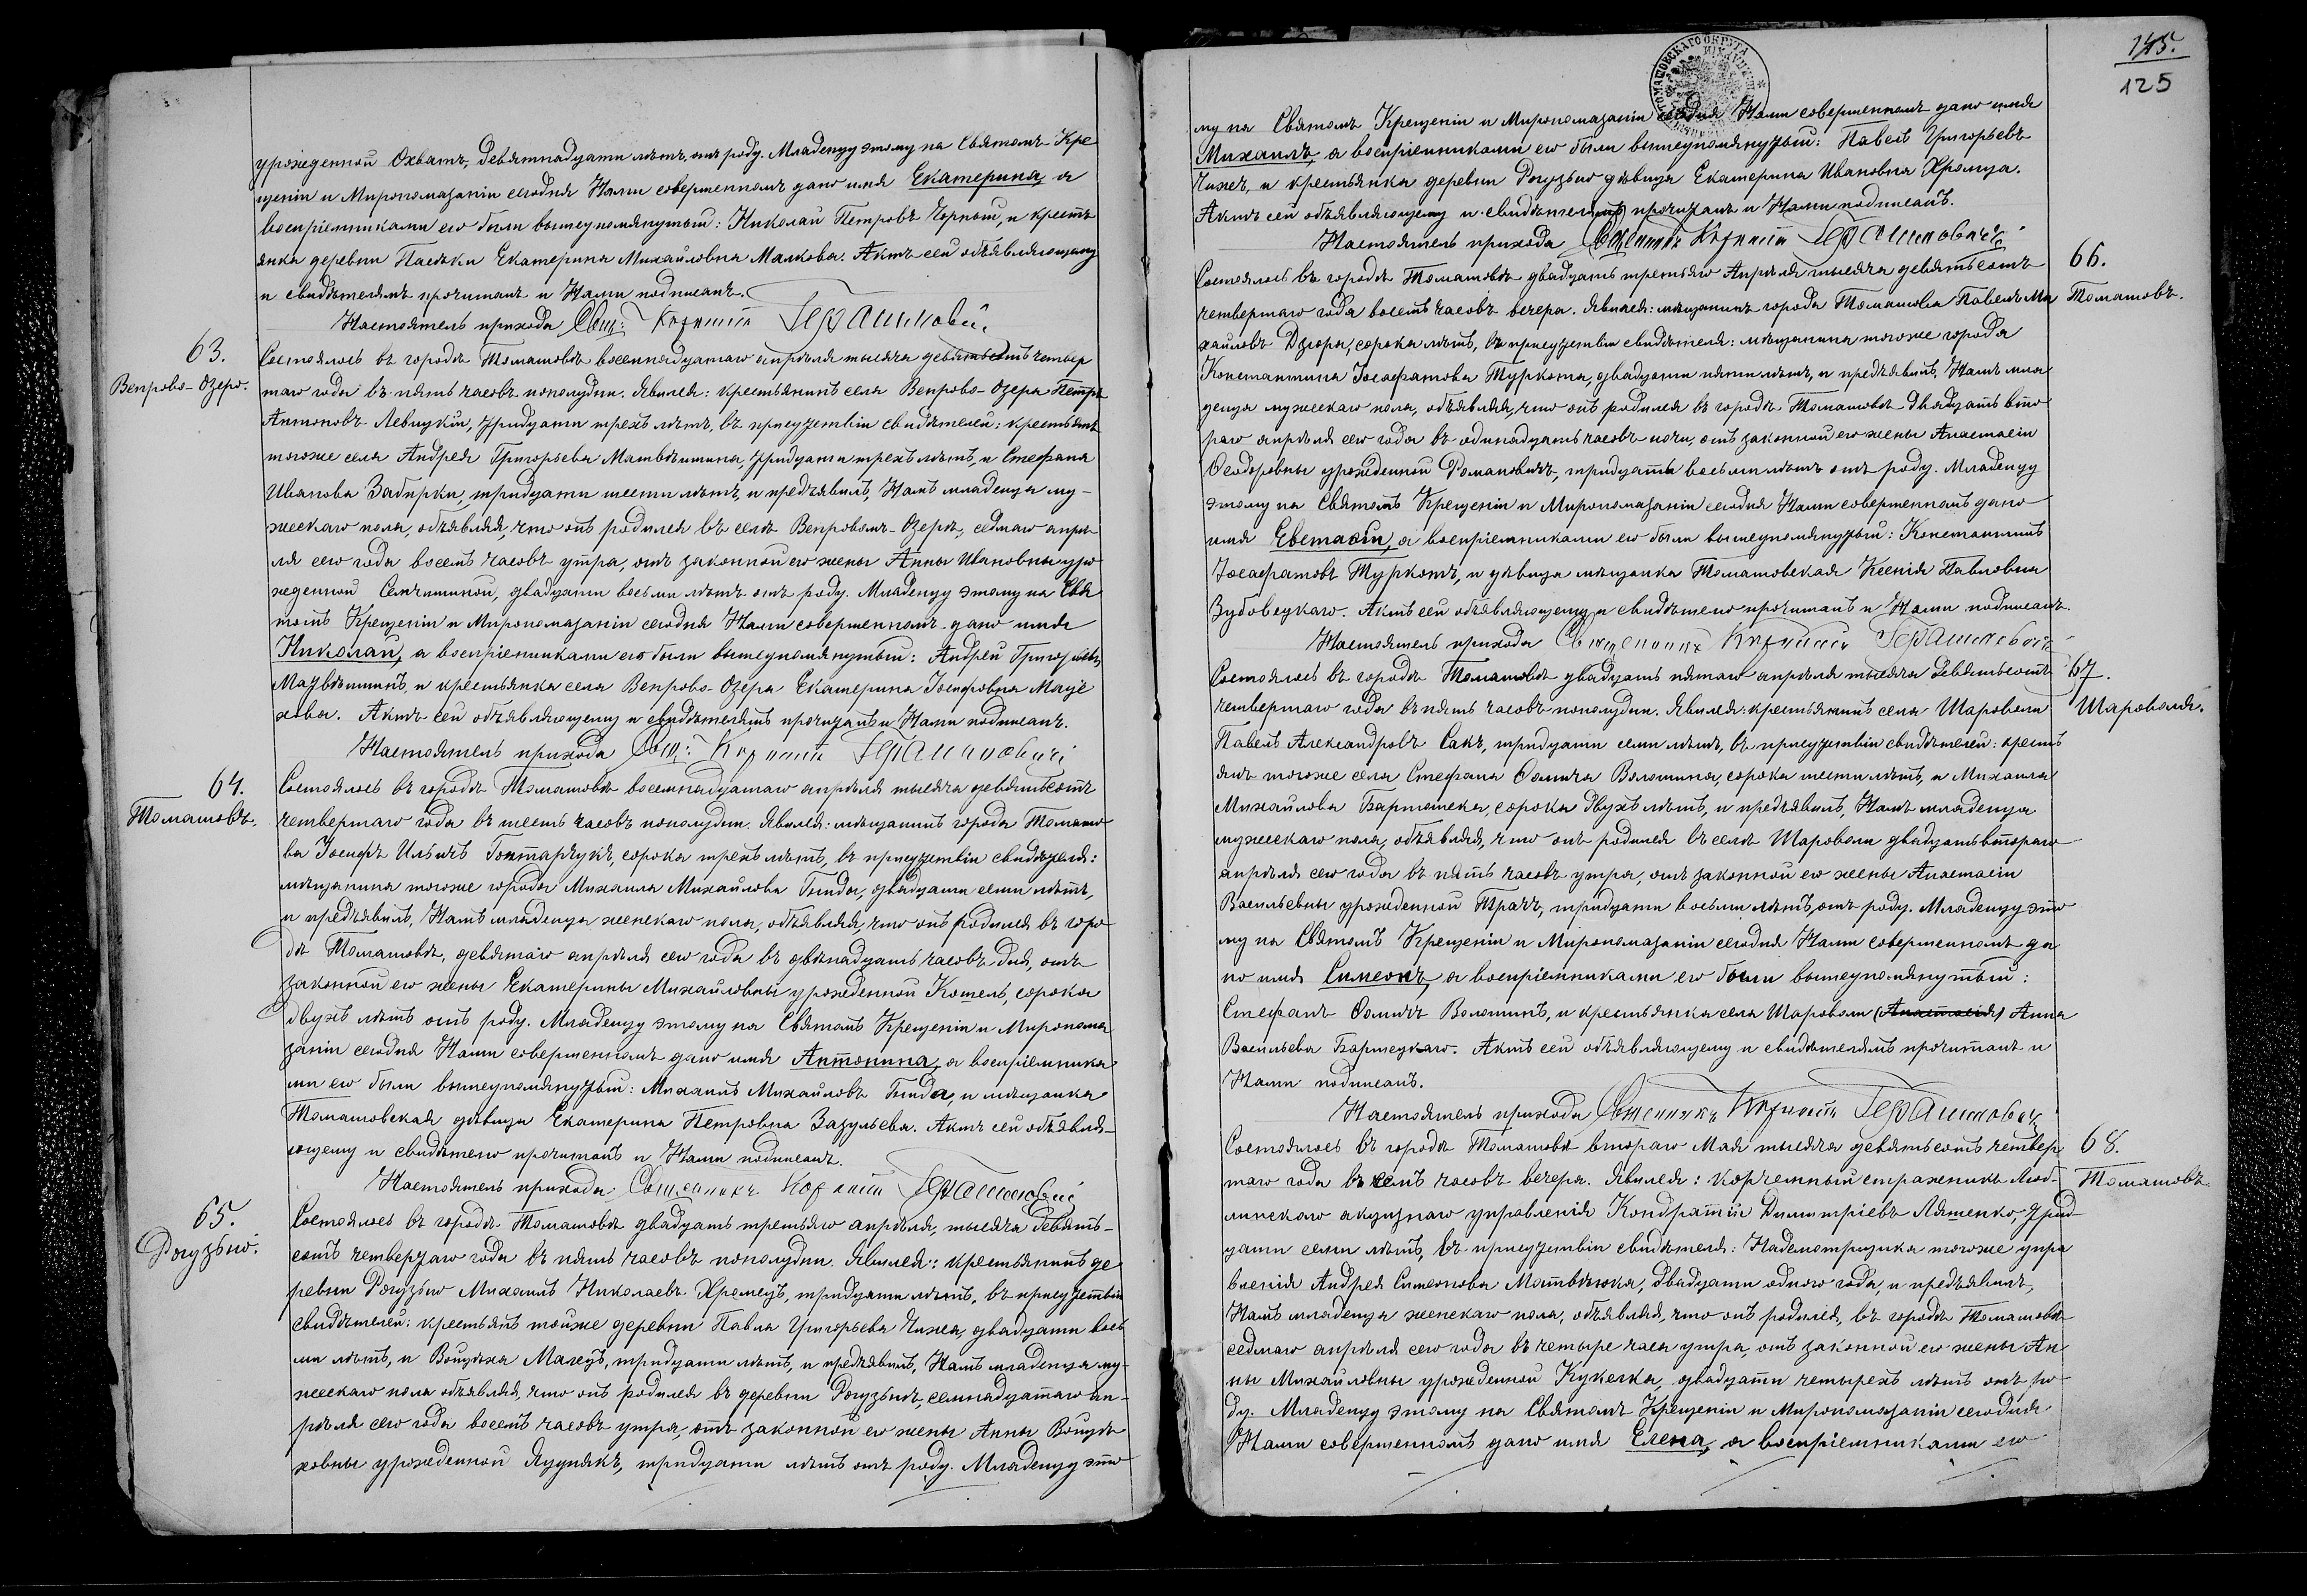 урожденной Охватъ, девятнадцати лѣтъ, отъ роду. Младенцу этому на Святомъ Кре
щеніи и Миропомазаніи сегодня Нами совершенномъ дано имя Екатерина, а
воспріемниками его были вышеупомянутый: Николай Петровъ Чорный, и кресть
янка деревни Пасѣки Екатерина Михайловна Малкова. Актъ сей объявляющему
и свидѣтелямъ прочитанъ и Нами подписанъ.
Настоятель прихода Свящ:
63.
Вепрово-Озеро.
Состоялось въ городѣ Томашовѣ восемнадцатаго апрѣля тысяча девятьсотъ четвер
таго года въ пять часовъ пополудни. Явился: крестьянинъ села Вепрово-Озера Петръ
Антоновъ Левицкій, тридцати трехъ лѣтъ, въ присутствіи свидѣтелей: крестьянъ
тогоже села Андрея Григорьева Матвѣишина, тридцати трехъ лѣтъ, и Стефана
Иванова Забирки, тридцати шести лѣтъ, и предъявилъ, Намъ младенца му-
жескаго пола, объявляя, что онъ родился въ селѣ Вепровомъ-Озерѣ, седмаго апрѣ-
ля сего года восемь часовъ утра, отъ законной его жены Анны Ивановны уро
жденной Семчишиной, двадцати восьми лѣтъ отъ роду. Младенцу этому на Свя
томъ Крещеніи и Миропомазаніи сегодня Нами совершенномъ дано имя
Николай, а воспріемниками его были вышеупомянутый: Андрей Григорьевъ
Матвѣишинъ, и крестьянка села Вепрово-Озера Екатерина Іосифовна
Актъ сей объявляющему и свидѣтелямъ прочитанъ и Нами подписанъ.
Настоятель прихода Свящ:
64.
Томашовъ.
Состоялось въ городѣ Томашовѣ восемнадцатаго апрѣля тысяча девятьсотъ
четвертаго года въ шесть часовъ пополудни. Явился: мѣщанинъ города Томашо-
ва Іосифъ Ильичъ Гонтарчукъ, сорока трехъ лѣтъ, въ присутствіи свидѣтеля:
мѣщанина тогоже города Михаила Михайлова Гынды, двадцати семи лѣтъ,
и предъявилъ, Намъ младенца женскаго пола, объявляя, что онъ родился въ горо
дѣ Томашовѣ, девятаго апрѣля сего года въ двѣнадцать часовъ дня, отъ
законной его жены Екатерины Михайловны урожденной Кошель, сорока
двухъ лѣтъ отъ роду. Младенцу этому на Святомъ Крещеніи и Миропома
заніи сегодня Нами совершенномъ дано имя Антонина, а воспріемника
ми его были вышеупомянутый: Михаилъ Михайловъ Гында, и мѣщанка
Томашовская дѣвица Екатерина Петровна Зазульева. Актъ сей объявля-
ющему и свидѣтелю прочитанъ и Нами подписанъ.
Настоятель прихода Священникъ
65.
Рогузьно.
Состоялось въ городѣ Томашовѣ двадцать третьяго апрѣля, тысяча девять-
сотъ четвертаго года въ пять часовъ пополудни. Явился: крестьянинъ де
ревни Рогузьно Михаилъ Николаевъ Хромецъ, тридцати лѣтъ, въ присутствіи
свидѣтелей: крестьянъ тойже деревни Павла Григорьева Чижа, двадцати вось
ми лѣтъ, и Войцѣха Малецъ, тридцати лѣтъ, и предъявилъ, Намъ младенца му-
жескаго пола объявляя, что онъ родился въ деревни Рогузьнѣ, семнадцатаго ап-
рѣля сего года восемь часовъ утра, отъ законной его жены Анны Войцѣ
ховны урожденной Яцунякъ, тридцати лѣтъ отъ роду. Младенцу это
145.
125
ТОМАШОВСКАГО ОКРУГА
му на Святомъ Крещеніи и Миропомазаніи сегодня Нами совершенномъ дано имя
Михаилъ, а воспріемниками его были вышеупомянутый: Павелъ Григорьевъ
Чижъ, и крестьянка деревни Рогузьно дѣвица Екатерина Ивановна Хромца.
Актъ сей объявляющему и свидѣтелямъ прочитанъ и Нами подписанъ.
Настоятель прихода Священникъ
66.
Томашовъ.
Состоялось въ городѣ Томашовѣ двадцать третьяго Апрѣля тысяча девятьсотъ
четвертаго года восемь часовъ вечера. Явился: мѣщанинъ города Томашова Павелъ Ми
хайловъ Дзюра, сорока лѣтъ, въ присутствіи свидѣтеля: мѣщанина тогоже города
Константина Іосафатова Туркота, двадцати пяти лѣтъ, и предъявилъ, Намъ мла
денца мужескаго пола, объявляя, что онъ родился въ городѣ Томашовѣ двадцать вто
раго апрѣля сего года въ одинадцать часовъ ночи, отъ законной его жены Анастасіи
Феодоровны урожденной Романовичъ, тридцати восьми лѣтъ отъ роду. Младенцу
этому на Святомъ Крещеніи и Миропомазаніи сегодня Нами совершенномъ дано
имя Евстафій, а воспріемниками его были вышеупомянутый: Константинъ
Іосафатовъ Туркотъ, и дѣвица мѣщанка Томашовская Ксенія Павловна
Зубовецкаго. Актъ сей объявляющему и свидѣтелю прочитанъ и Нами подписанъ.
Настоятель прихода Священникъ
67.
Шароволя.
Состоялось въ городѣ Томашовѣ двадцать пятаго апрѣля тысяча девятьсотъ
четвертаго года въ пять часовъ пополудни. Явился: крестьянинъ села Шароволи
Павелъ Александровъ Сакъ, тридцати семи лѣтъ, въ присутствіи свидѣтелей: кресть
янъ тогоже села Стефана Фомича Волошина, сорока шести лѣтъ, и Михаила
Михайлова Бартошека, сорока двухъ лѣтъ, и предъявилъ, Намъ младенца
мужескаго пола, объявляя, что онъ родился въ селѣ Шароволи двадцать втораго
апрѣля сего года въ пять часовъ утра, отъ законной его жены Анастасіи
Васильевны урожденной Трачъ, тридцати восьми лѣтъ, отъ роду. Младенцу это
му на Святомъ Крещеніи и Миропомазаніи сегодня Нами совершенномъ да
но имя Симеонъ, а воспріемниками его были вышеупомянутый:
Стефанъ Фомичъ Волошинъ, и крестьянка села Шароволи (Анастасія) Анна
Васильева Бартецкаго. Актъ сей объявляющему и свидѣтелямъ прочитанъ и
Нами подписанъ.
Настоятель прихода Священникъ
68.
Томашовъ.
Состоялось въ городѣ Томашовѣ втораго Мая тысяча девятьсотъ четвер
таго года въ семь часовъ вечера. Явился: корчемный стражникъ Люб-
линскаго акцизнаго управленія Кондратій Димитріевъ Ляшенко, трид
цати семи лѣтъ, въ присутствіи свидѣтеля: Надсмотрщика тогоже упра
вленія Андрея Симеонова Матвѣюка, двадцати одного года, и предъявилъ,
Намъ младенца женскаго пола, объявляя, что онъ родился, въ городѣ Томашовѣ
седмаго апрѣля сего года въ четыре часа утра, отъ законной его жены Ан
ны Михайловны урожденной Кукелка, двадцати четырехъ лѣтъ отъ ро-
ду. Младенцу этому на Святомъ Крещеніи и Миропомазаніи сегодня
Нами совершенномъ дано имя Елена, а воспріемниками его